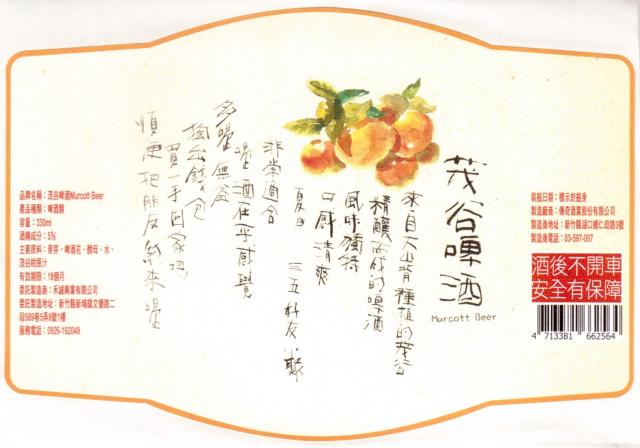 茂谷啤酒
Murcott Beer
來自大山背種植的茂谷
精釀而成的啤酒
風味獨特
口感清爽
夏日 三五好友小聚
非常適合
喝酒在乎感覺
多喝無益
掏出錢包
買一手回家吧
順便把朋友給來喝
品牌名稱:茂谷啤酒Murcott Beer
產品種類:啤酒類
容量:330ml
酒精成分:5%
主要原料:麥芽、啤酒花、酵母、水、
茂谷柑原汁
有效期限:18個月
委託製造商:禾誠興業有限公司
委託製造地址:新竹縣新埔鎮文德路二
段589巷5弄8號1樓
服務電話:0926-192049
裝瓶日期:標示於瓶身
製造廠商:傳奇酒業股份有限公司
製造地址:新竹縣湖口鄉仁政路3號
製造商電話:03-597-007
酒後不開車
安全有保障
4 713381 662564